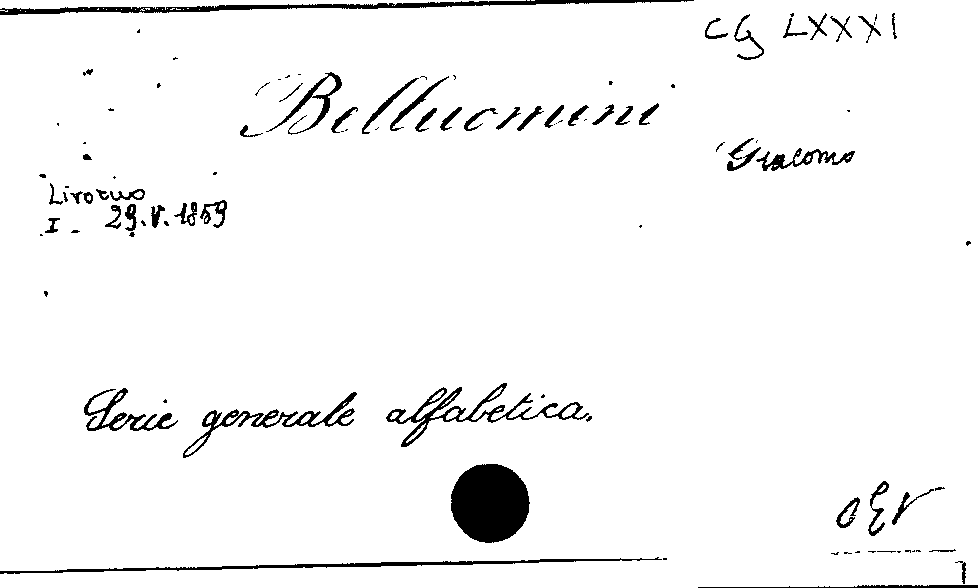 CG LXXXI
Belluomini
Giacomo
I - 29.V.1859
Serie generale alfabetica.